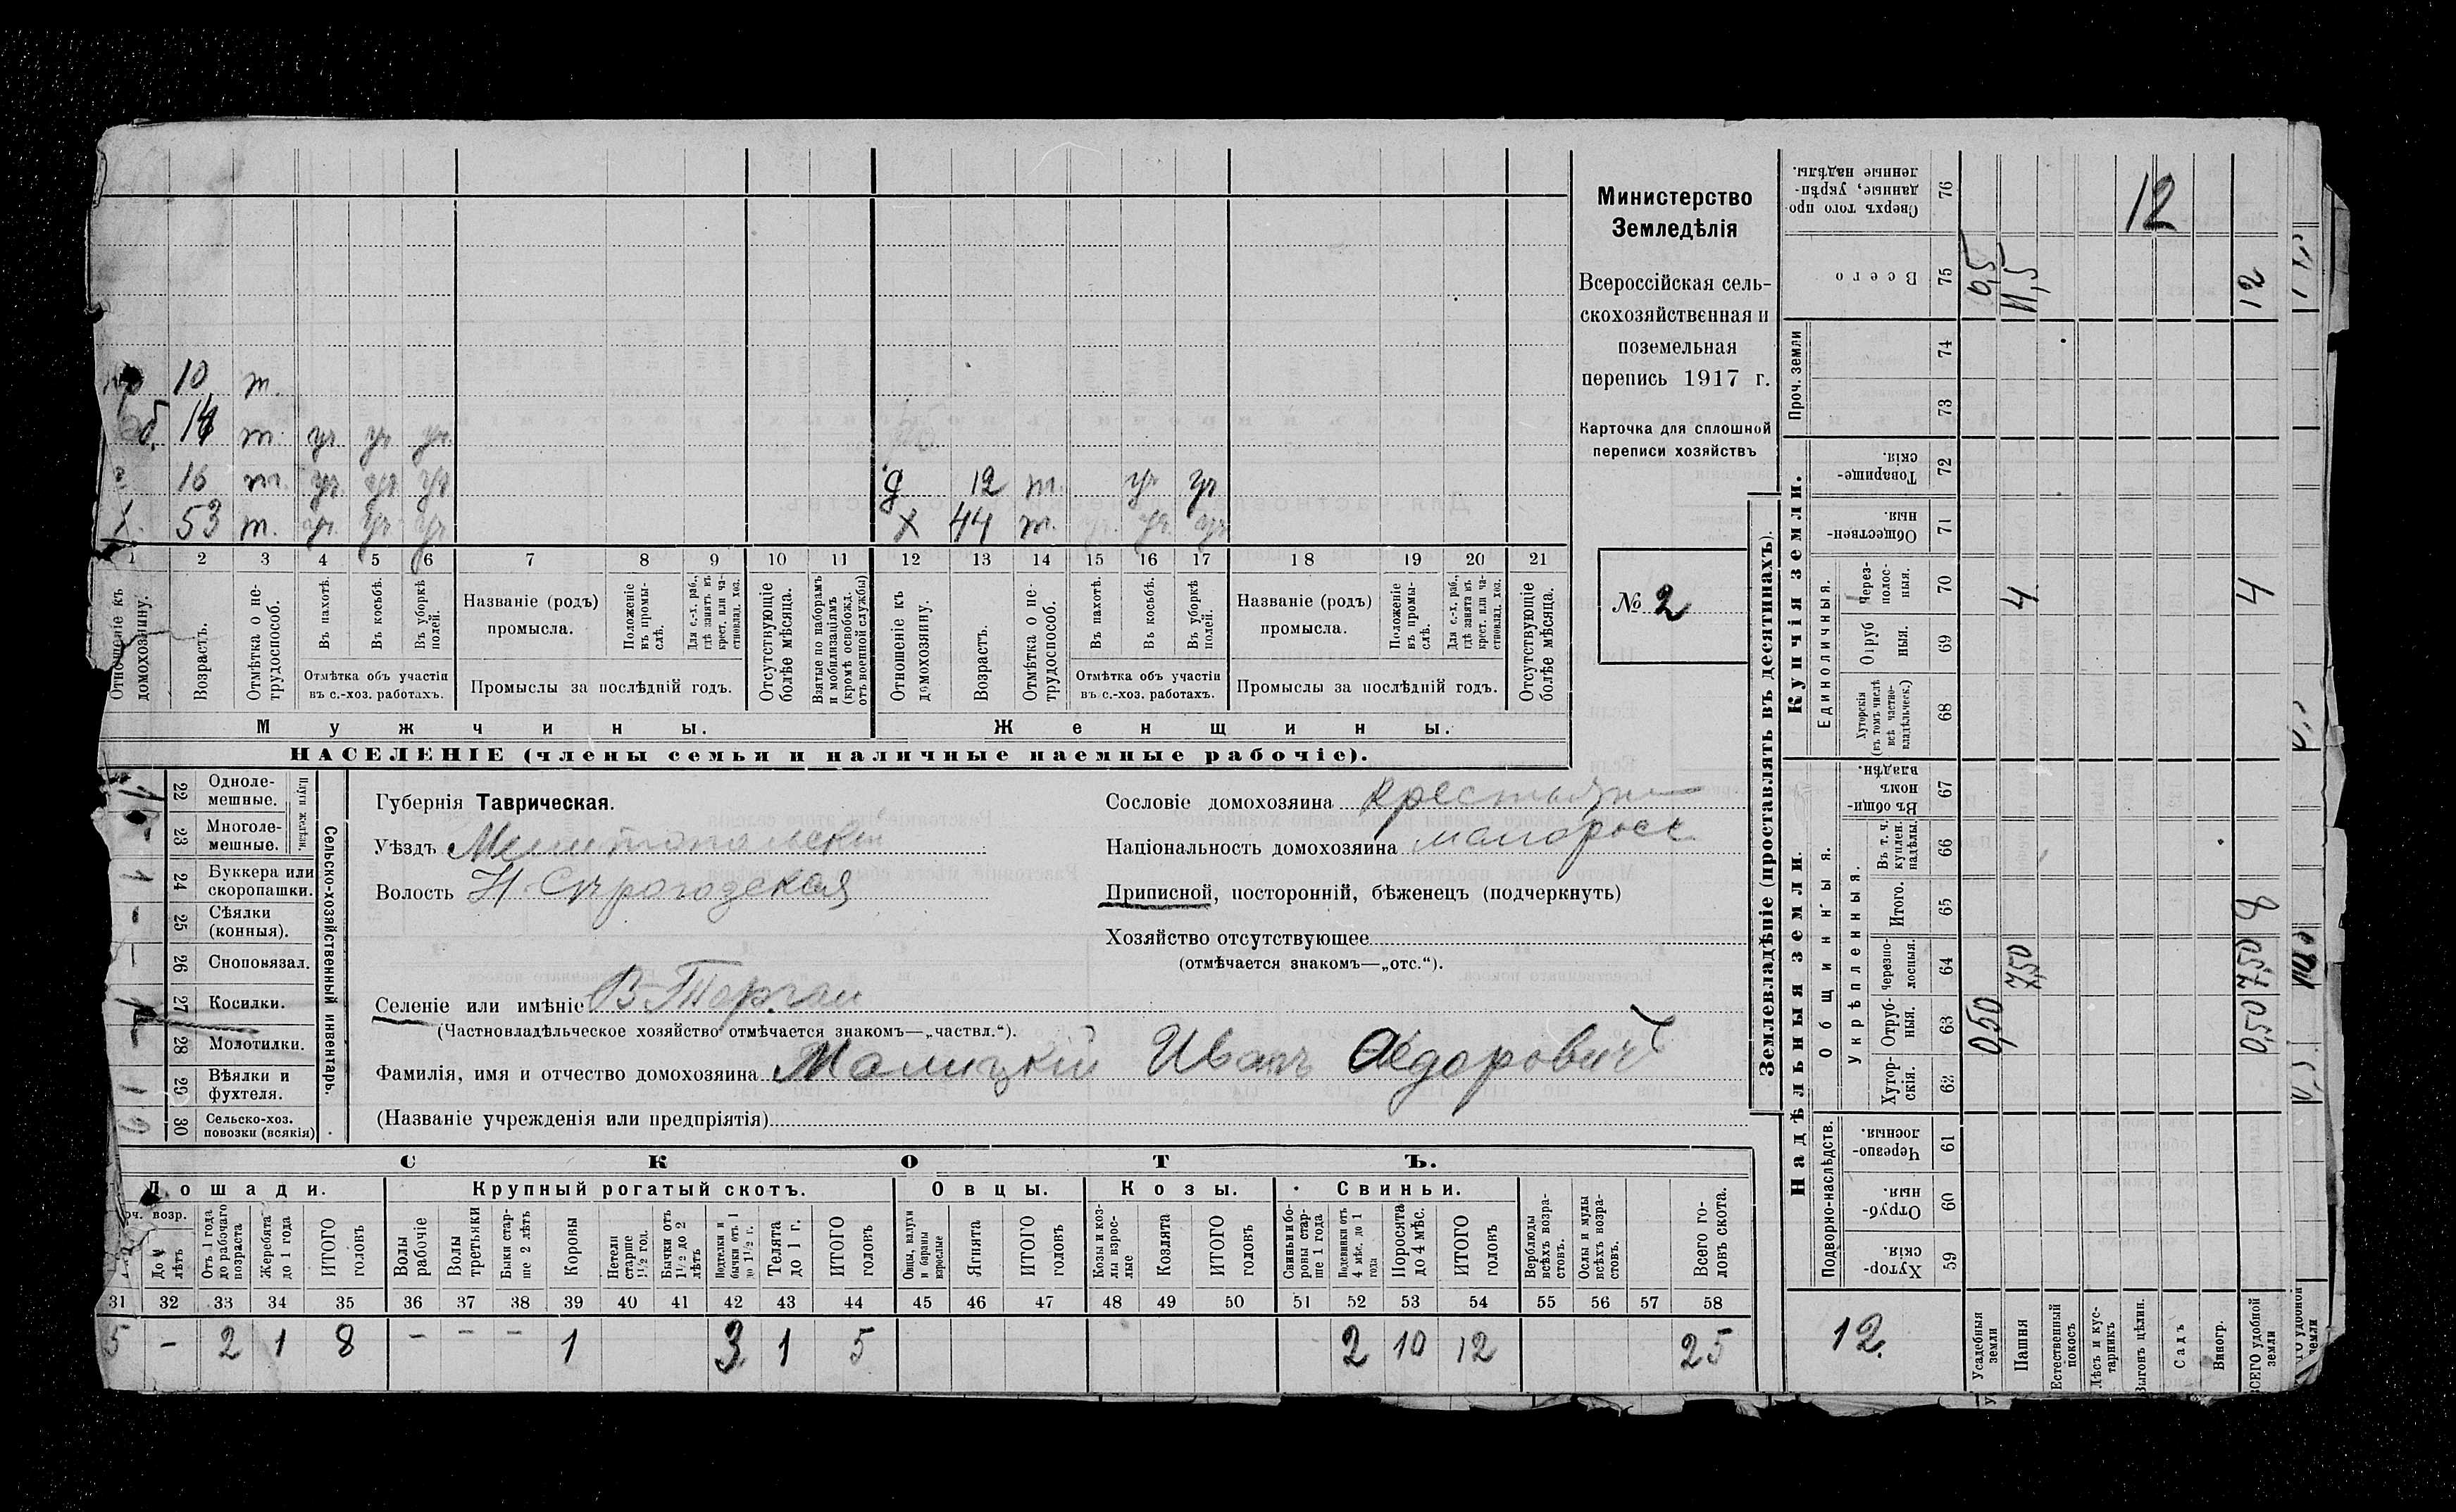 10 т.
14 т. уч уч уч
16 т. уч. уч уч
д 12 т. уч уч
Х. 53 т. уч. уч. уч
Х 44 т. уч. уч. уч
1 2 3 4 5 6 7 8 9 10 11 12 13 14 15 16 17 18 19 20 21
Отношеніе къ домохозяину.
Возрастъ.
Отмѣтка о нетрудоспособ.
Въ пахотѣ.
Въ косьбѣ.
Въ уборкѣ полей.
Отмѣтка объ участіи въ с.-хоз. работахъ.
Названіе (родъ) промысла.
Положеніе въ промыслѣ.
Для с.-х. раб., гдѣ занятъ въ крест. или частновлад. хоз.
Промыслы за послѣдній годъ.
Отсутствующіе болѣе мѣсяца.
Взятые по наборамъ и мобилизаціямъ (кромѣ освобожд. отъ военной службы)
Отношеніе къ домохозяину.
Возрастъ.
Отмѣтка о нетрудоспособ.
Въ пахотѣ.
Въ косьбѣ.
Въ уборкѣ полей.
Отмѣтка объ участіи въ с.-хоз. работахъ.
Названіе (родъ) промысла.
Положеніе въ промыслѣ.
Для с.-х. раб., гдѣ занята въ крест. или частновлад. хоз.
Промыслы за послѣдній годъ.
Отсутствующіе болѣе мѣсяца.
Мужчины.
Женщины.
НАСЕЛЕНІЕ (члены семьи и наличные наемные рабочіе).
Министерство
Земледѣлія
Всероссійская сель-
скохозяйственная и
поземельная
перепись 1917 г.
Карточка для сплошной
переписи хозяйствъ
№ 2
Сельско-хозяйственный инвентарь.
Плуги желѣзн.
22 Одноле-
мешные.
23 Многоле-
мешные.
24 Буккера или
скоропашки.
25 Сѣялки
(конныя).
26 Сноповязал.
27 Косилки.
28 Молотилки.
29 Вѣялки и
фухтеля.
30 Сельско-хоз.
повозки (всякія)
Губернія Таврическая.
Уѣздъ Мелитопольскій
Волость Н-Сѣрогозская
Селеніе или имѣніе В-Торгаи
(Частновладѣльческое хозяйство отмѣчается знакомъ—„частвл.“).
Фамилія, имя и отчество домохозяина Малицкій Иванъ Ѳедоровичъ
(Названіе учрежденія или предпріятія)
Сословіе домохозяина крестьян
Національность домохозяина малоросс
Приписной, посторонній, бѣженецъ (подчеркнуть)
Хозяйство отсутствующее
(отмѣчается знакомъ—„отс.“).
СКОТЪ.
Лошади. Крупный рогатый скотъ. Овцы. Козы. Свиньи.
До 4 лѣтъ
Отъ 1 года до рабочаго возраста
Жеребята до 1 года
ИТОГО головъ
Волы рабочіе
Волы третьяки
Быки старше 2 лѣтъ
Коровы
Нетели старше 1½ год.
Бычки отъ 1½ до 2 лѣтъ
Подтелки и бычки отъ 1 до 1½ г.
Телята до 1 г.
ИТОГО головъ
Овцы, валухи и бараны взрослые
Ягнята
ИТОГО головъ
Козы и козлы взрослые
Козлята
ИТОГО головъ
Свиньи и бороны старше 1 года
Подсвинки отъ 4 мѣс. до 1 года
Поросята до 4 мѣс.
ИТОГО головъ
Верблюды всѣхъ возрастовъ.
Ослы и мулы всѣхъ возрастовъ.
Всего головъ скота.
31 32 33 34 35 36 37 38 39 40 41 42 43 44 45 46 47 48 49 50 51 52 53 54 55 56 57 58
5 - 2 1 8 - - - 1 3 1 5 2 10 12 25
Землевладѣніе (проставлять въ десятинахъ).
Надѣльныя земли.
Купчія земли.
Проч. земли
Подворно-наслѣдств.
Общинныя.
Укрѣпленныя.
Единоличныя.
Сверхъ того проданные, укрѣпленные надѣлы. 76
Всего 75
74
73
Товарищескія. 72
Общественныя. 71
Черезполосныя. 70
Отрубныя. 69
Хуторскія (въ томъ числѣ всѣ частновладѣльческ.) 68
Въ общинномъ владѣн. 67
Въ т. ч. куплен. надѣлы. 66
Итого. 65
Черезполосныя. 64
Отрубныя. 63
Хуторскія. 62
Черезполосныя. 61
Отрубныя. 60
Хуторскія. 59
12
0,5
11,5
12
4
4
8
7,50
7,50
0,50
0,50
12.
Усадебныя земли
Пашня
Естественный покосъ
Лѣсъ и кустарникъ
Выгонъ цѣлин.
Садъ
Виногр.
ВСЕГО удобной земли